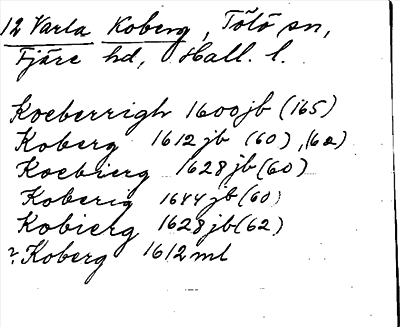 12 Varla Koberg, Tölö sn,
Fjäre hd, Hall. l.
Koeberrigh 1600jb (165)
Koberg 1612 jb (60), (62)
Koebierg 1628 jb (60)
Koberig 1644 jb (60)
Kobierg 1628 jb (62)
? Koberg 1612 ml